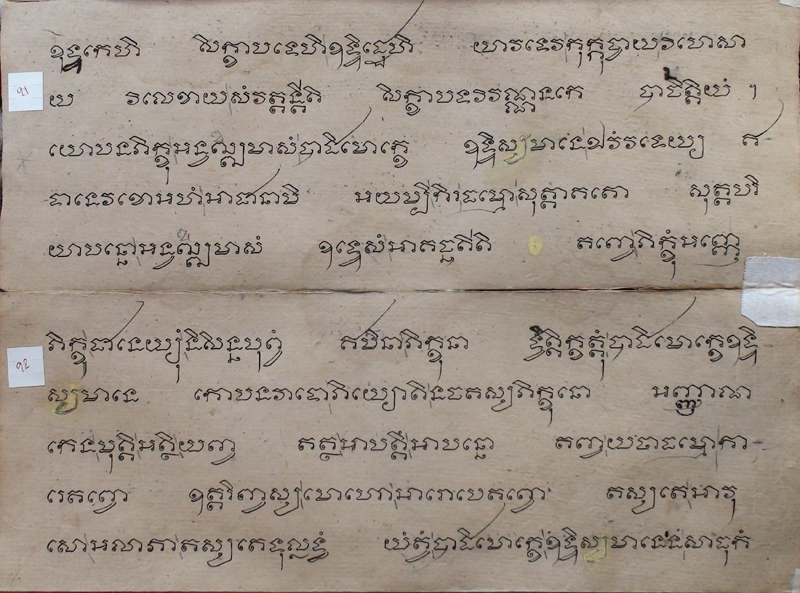 ខុទ្ទកេហិ សិក្ខាបទេហិឧទ្ទិដ្ឋេហិ យាវទេវកុក្កុច្ចាយវិហេសា
យ វិលេខាយសំវត្តន្តីតិ សិក្ខាបទវិវណ្ណនកេ បាចិត្តិយំ ។
យោបនភិក្ខុអន្វឌ្ឍមាសំបាតិមោក្ខេ ឧទ្ទិស្សមានេឯវំវទេយ្យ ឥ
ទានេវខោអហំអាជានាមិ អយម្បិកិរធម្មោសុត្តាគតោ សុត្តបរិ
យាបន្នោអន្វឌ្ឍមាសំ ឧទ្ទេសំអាគច្ឆតីតិ តញ្ចេភិក្ខុំអញ្ញេ
ភិក្ខូជានេយ្យុំនិសិន្នបុព្វំ ឥមិនាភិក្ខុនា ទ្វិត្តិក្ខត្តុំបាតិមោក្ខេឧទ្ទិ
ស្សមានេ កោបនវាទោភិយ្យោតិនចតស្សភិក្ខុនោ អញ្ញាណ
កេនមុត្តិអត្ថិយញ្ច តត្ថអាបត្តឹអាបន្នោ តញ្ចយថាធម្មោកា
រេតព្វោ ឧត្តរិញ្ចស្សមោហោអារោបេតព្វោ តស្សតេអាវុ
សោអលាភាតស្សតេទុល្លទ្ធំ យំត្វំបាតិមោក្ខេឧទ្ទិស្សមានេនសាធុកំ